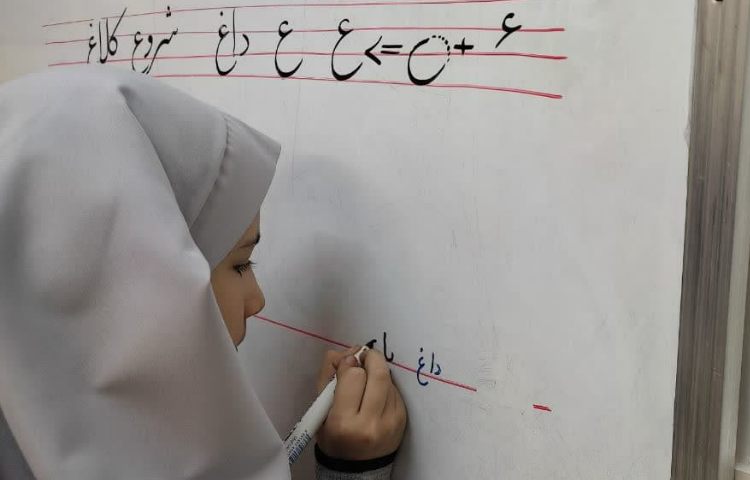 ء + ح => ع ع داغ شروع کلاغ
داغ با